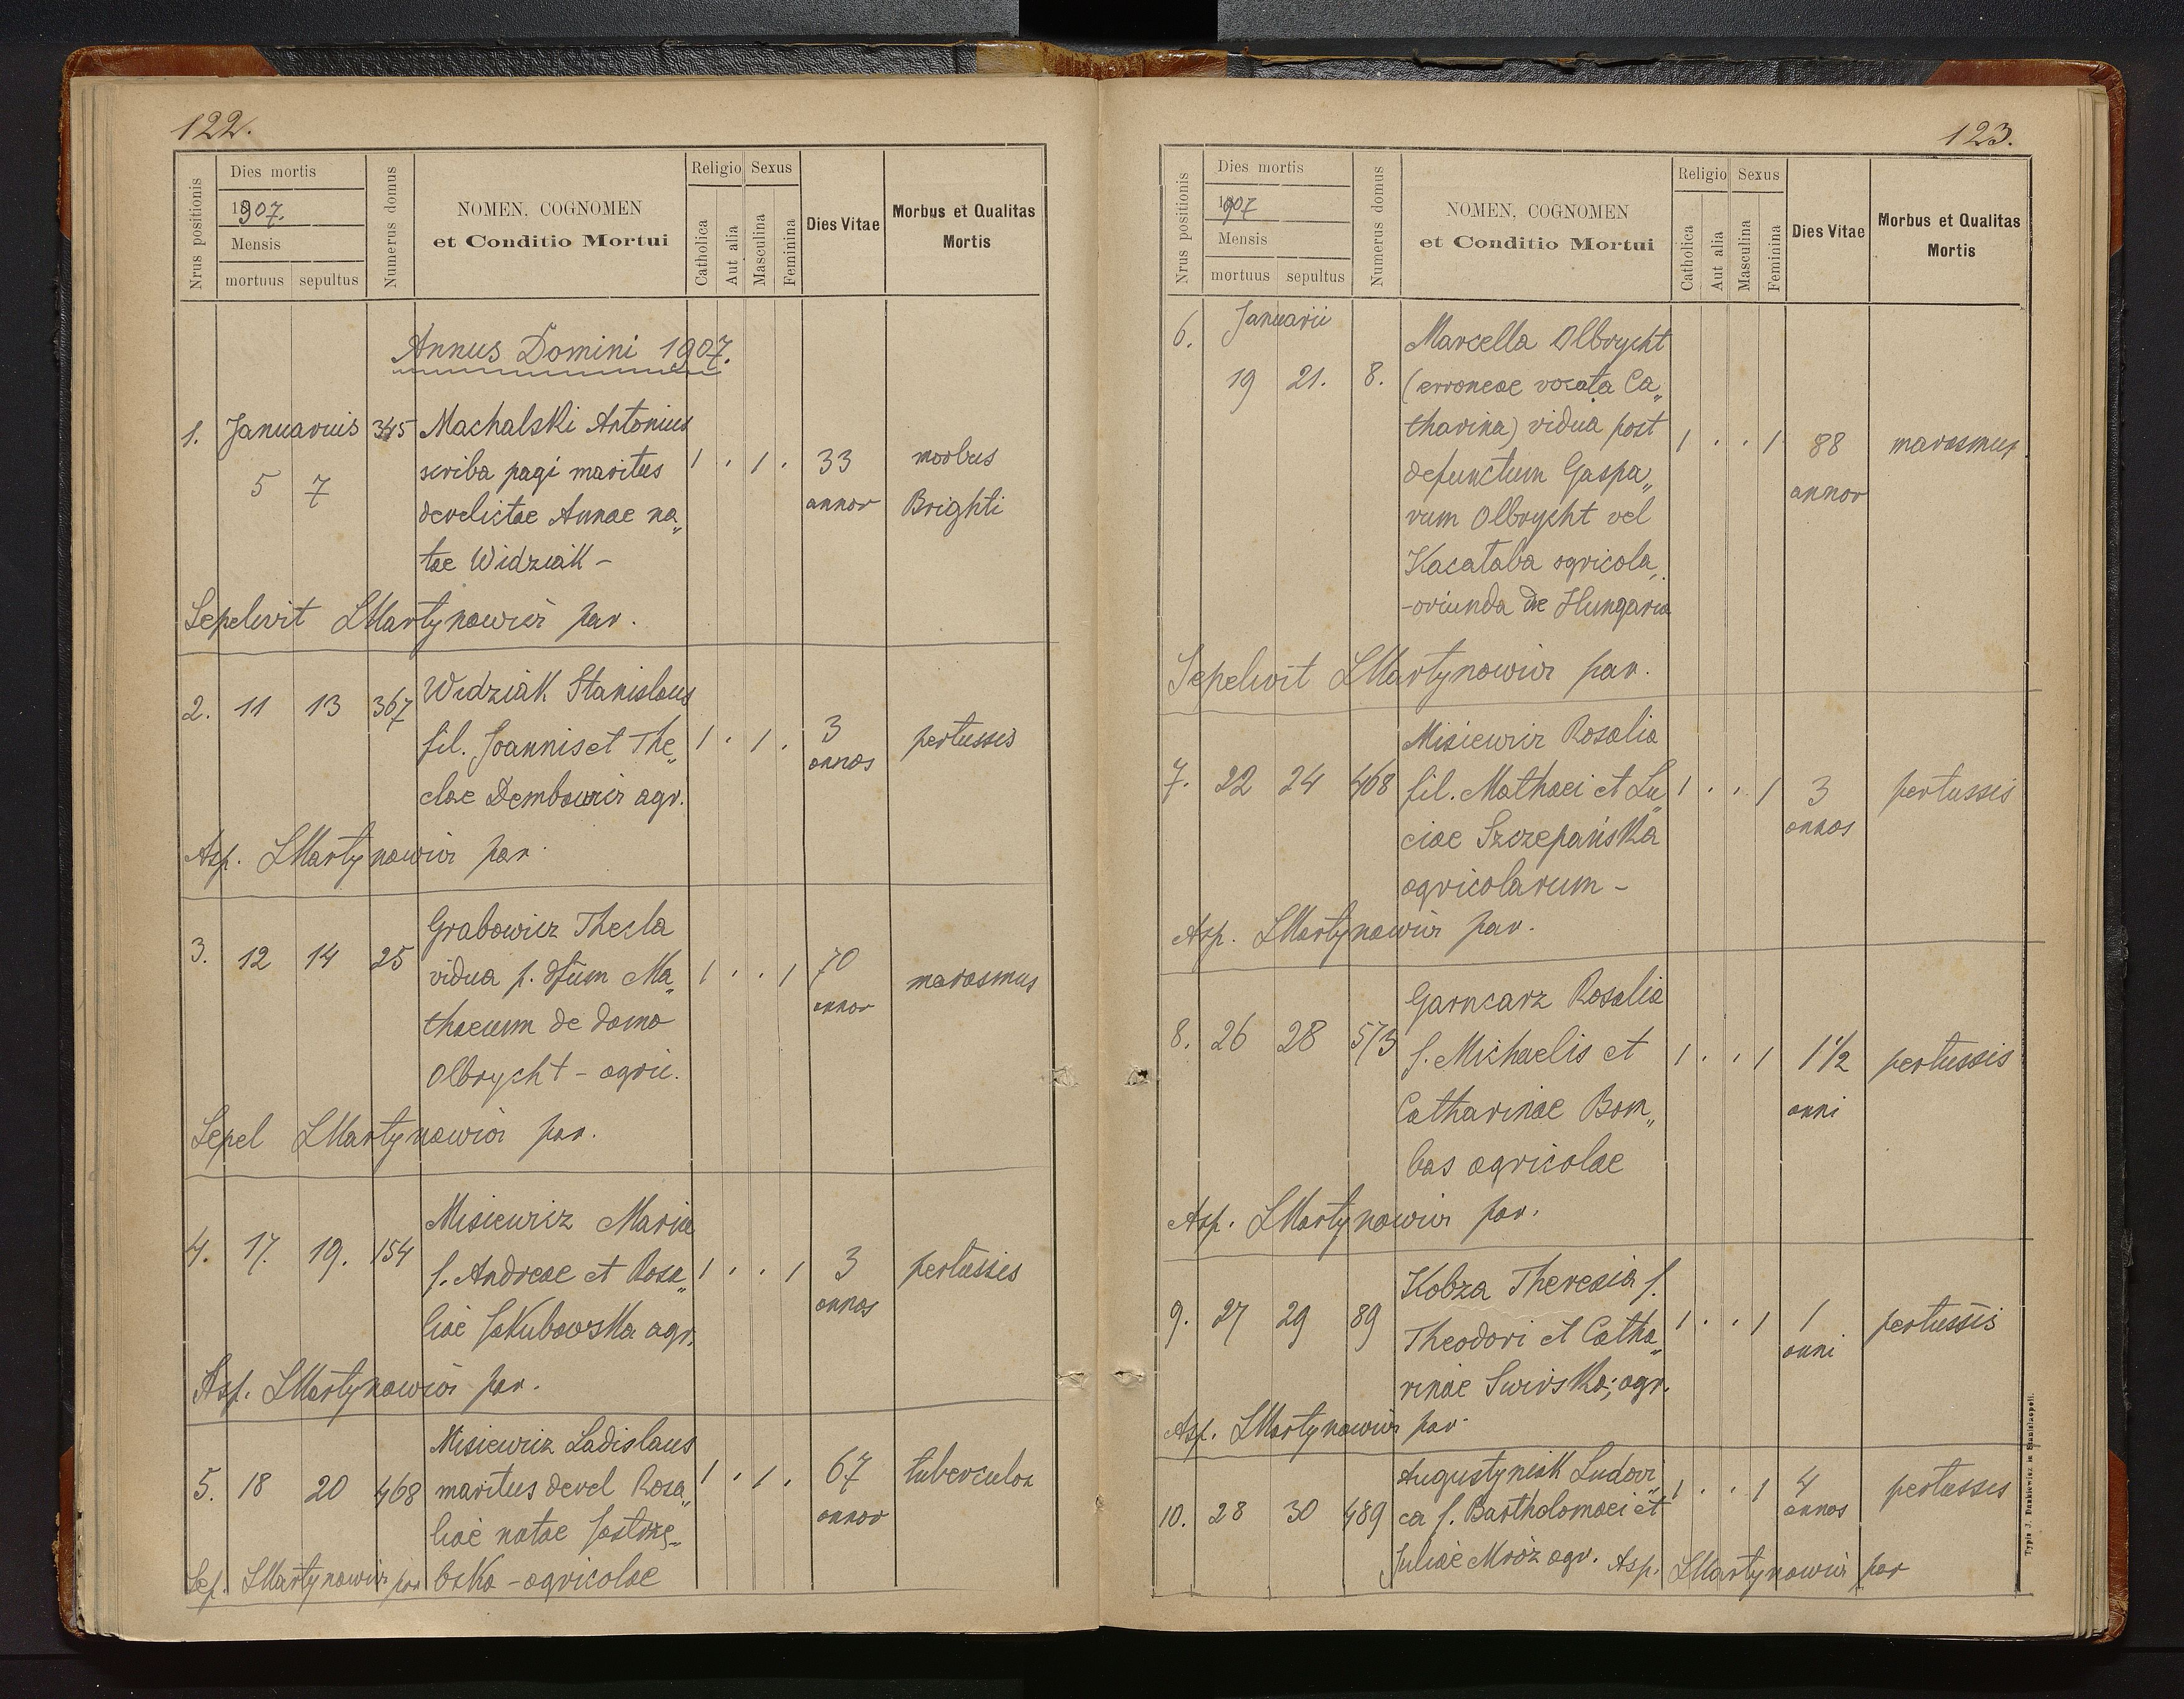 122.
Nrus positionis
Dies mortis
1907.
Mensis
mortuus
sepultus
Numerus domus
NOMEN, COGNOMEN
et Conditio Mortui
Religio
Catholica
Aut alia
Sexus
Masculina
Feminina
Dies Vitae
Morbus et Qualitas
Mortis
Annus Domini 1907.
1. Januarius 345 Machalski Antonius
5 7 scriba pagi maritus 1 . 1 . 33 morbus
derelictae Annae na„ annor Brighti
tae Widziak -
Sepelivit LMartynowicz par.
2. 11 13 367 Widziak Stanislaus
fil. Joannis et The„ 1 . 1 . 3 annos pertussis
clae Dembowicz agr.
Asp. LMartynowicz par.
3. 12 14 25 Grabowicz Thecla
vidua p. dfum Ma„ 1 . . 1 70 annor marasmus
thaeum de domo
Olbrycht - agric.
Sepel LMartynowicz par.
4. 17. 19. 154 Misiewicz Maria
f. Andreae et Rosa„ 1 . . 1 3 annos pertussis
liae Jakubowska agr.
Asp. LMartynowicz par.
5. 18 20 468 Misiewicz Ladislaus
maritus derel Rosa„ 1 . 1 . 67 annor tuberculoz
liae natae Jastrzę„
Sep. LMartynowicz par bska - agricolae
123.
Nrus positionis
Dies mortis
1907
Mensis
mortuus
sepultus
Numerus domus
NOMEN, COGNOMEN
et Conditio Mortui
Religio
Catholica
Aut alia
Sexus
Masculina
Feminina
Dies Vitae
Morbus et Qualitas
Mortis
6. Januarii Marcella Olbrycht
19 21. 8. (erroneae vocata Ca„
tharina) vidua post 1 . . 1 88 marasmus
defunctum Gaspa„ annor
rum Olbrycht vel
Kacataba agricola
- oriunda de Hungaria
Sepelivit LMartynowicz par.
Misiewicz Rosalia
7. 22 24 468 fil. Mathaei et Lu„ 1 . . 1 3 annos pertussis
ciae Szczepańska
agricolarum -
Asp. LMartynowicz par.
Garncarz Rosalia
8. 26 28 573 f. Michaelis et 1 . . 1 1 1/2 anni pertussis
Catharinae Bom„
bas agricolae
Asp. LMartynowicz par.
Kobza Theresia f.
9. 27 29 89 Theodori et Catha„ 1 . . 1 1 anni pertussis
rinae Swirska; agr.
Asp. LMartynowicz par.
Augustyniak Ludovi„ 1 . . 1 4 annos pertussis
10. 28 30 489 ca f. Bartholomaei et
Juliae Mróz agr. Asp. LMartynowicz par
Typis J. Dankiewicz in Stanislaopoli.